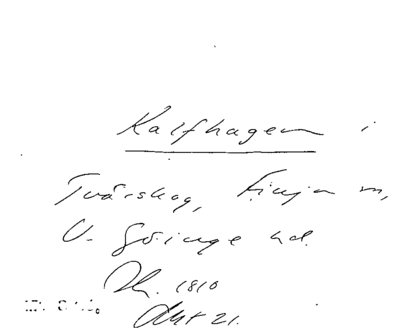 Kalfhagen i
Tvärskog, Finja sn,
V. Göinge hd.
1810
Akt 21.